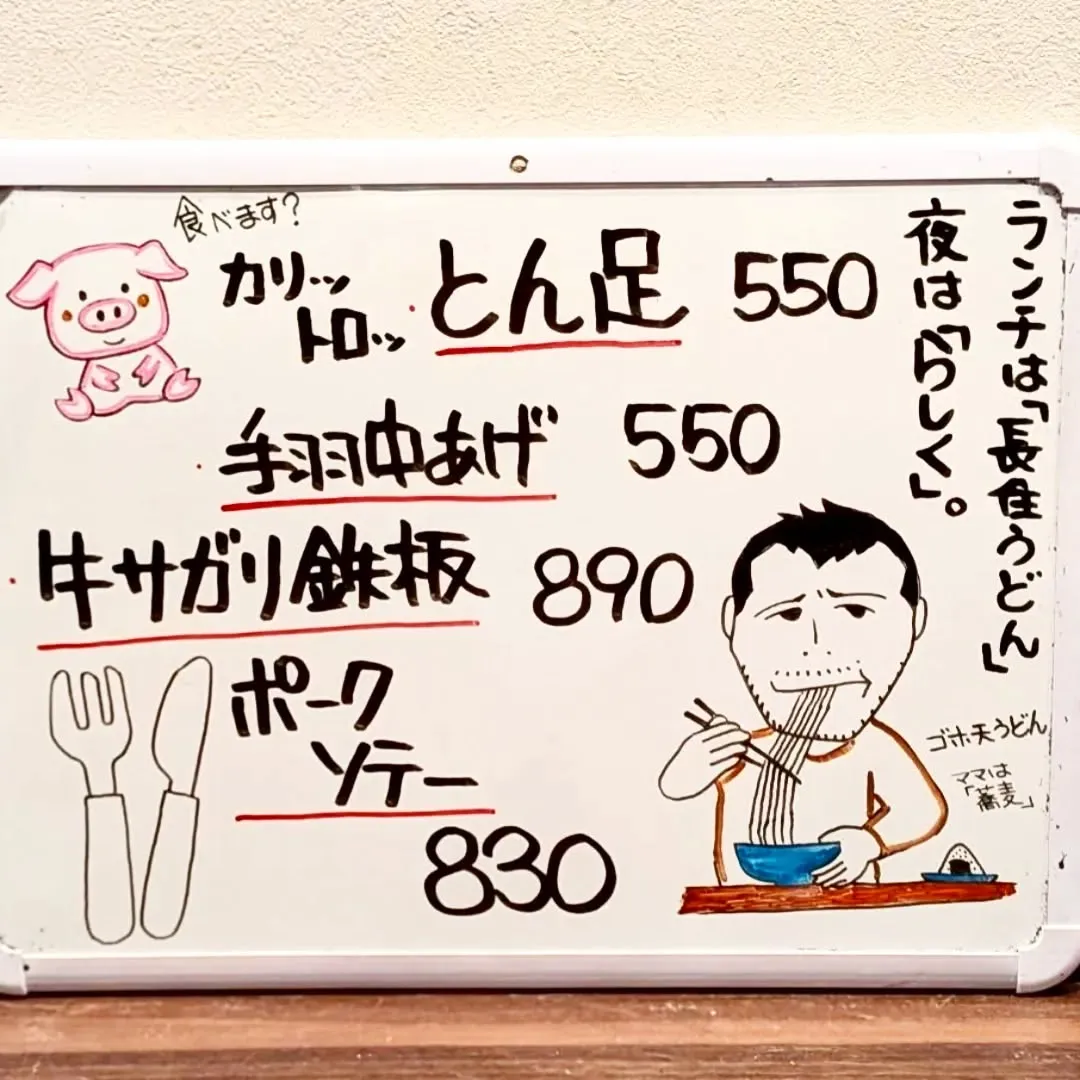 食べます?
カリッ
トロッ
とん足 550
手羽中あげ 550
牛サガリ鉄板 890
ポーク
ソテー
830
ランチは「長住うどん」
夜は「らしく」。
ゴボ天うどん
ママは
「蕎麦」